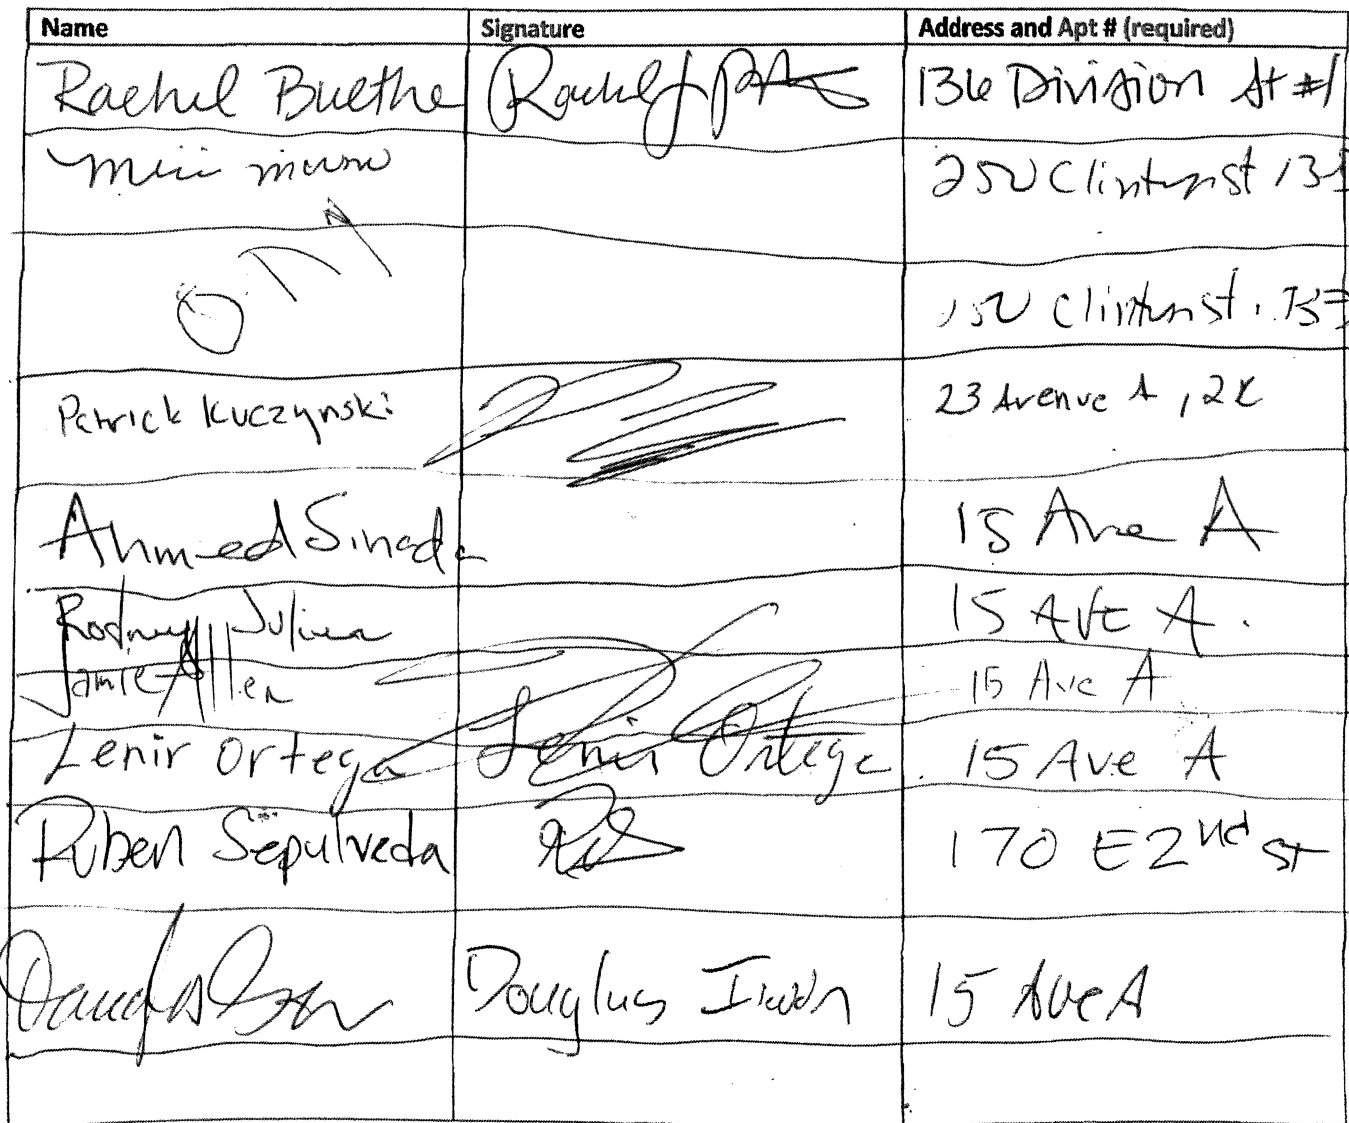 Name Signature Address and Apt # (required)
Rachel Buethe Rachel J 136 Division St #1
250 Clinton st 13
150 Clinton st.
Patrick Kuczynski 23 Avenue A, 2K
Ahmed Sinada 15 Ave A
Rodney Julien 15 AVE A.
Jamie Allen 15 Ave A
Lenir Ortega Lenir Ortega 15 Ave A
Ruben Sepulveda 170 E 2nd St
Douglas Douglas Irwin 15 Ave A